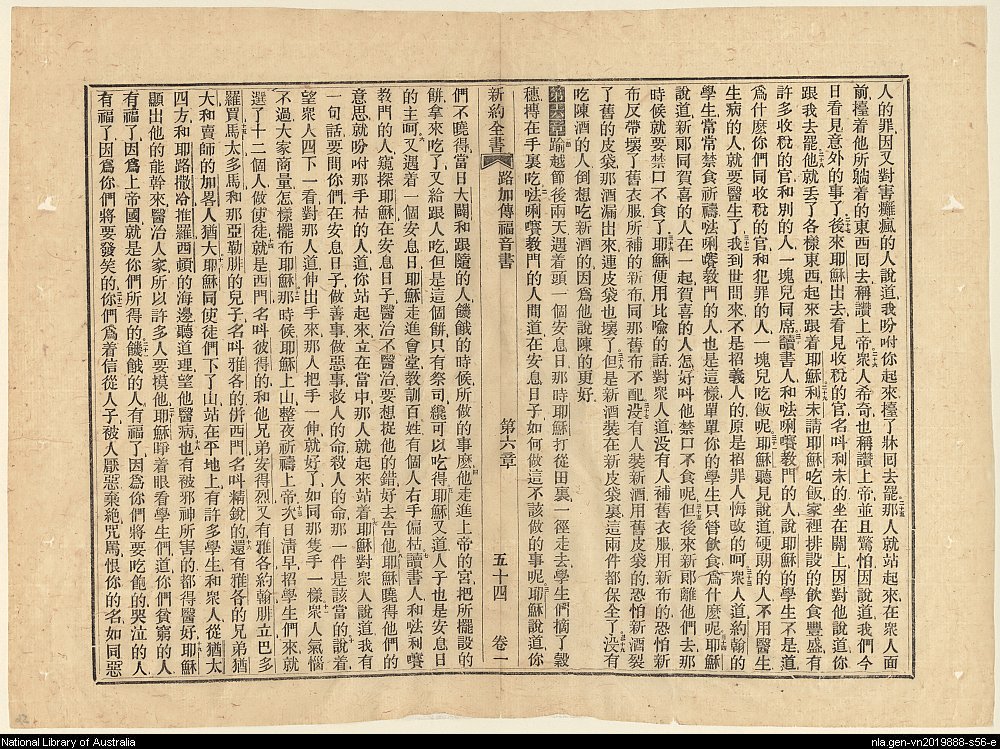 人的罪因又對害癱瘋的人說道我吩咐你起來擡了牀囘去罷那人就站起來在衆人面
前擡着他所躺着的東西囘去稱讚上帝衆人希奇也稱讚上帝並且驚怕因說道我們今
日看見意外的事了後來耶穌出去看見收稅的官名呌利未的坐在關上因對他說道你
跟我去罷他就丟了各樣東西起來跟着耶穌利未請耶穌吃飯家裡排設的飲食豐盛有
許多收稅的官和別的人一塊兒同席讀書人和𠵽唎㘔教門的人說耶穌的學生不是道
爲什麽你們同收稅的官和犯罪的人一塊兒吃飯呢耶穌聽見說道硬朗的人不用醫生
生病的人就要醫生了我到世間來不是招義人的原是招罪人悔改的呵衆人道約翰的
學生常常禁食祈禱𠵽唎㘔教門的人也是這樣單單你的學生只管飲食爲什麽呢耶穌
說道新郞同賀喜的人在一起賀喜的人怎好呌他禁口不食呢但後來新郞離他們去那
時候就要禁口不食了耶穌便用比喩的話對衆人道没有人補舊衣服用新布的恐怕新
布反帶壞了舊衣服所補的新布同那舊布不配没有人裝新酒用舊皮袋的恐怕新酒裂
了舊的皮袋那酒漏出來連皮袋也壞了但是新酒裝在新皮袋裏這兩件都保全了没有
吃陳酒的人倒想吃新酒的因爲他說陳的更好
第六章踰越節後兩天遇着頭一個安息日那時耶穌打從田裏一徑走去學生們摘了穀
穗搏在手裏吃𠵽唎㘔教門的人間道在安息日子如何做這不該做的事呢耶穌說道你
新約全書 路加傳福音書 第六章 五十四 卷一
們不曉得當日大闢和跟隨的人饑餓的時候所做的事麽他走進上帝的宮把所擺設的
餅拿來吃了又給跟人吃但是這個餅只有祭司纔可以吃得耶穌又道人子也是安息日
的主呵又遇着一個安息日耶穌走進會堂教訓百姓有個人右手偏枯讀書人和𠵽唎㘔
教門的人窺探耶穌在安息日子醫治不醫治要想捉他的錯好去告他耶穌曉得他們的
意思就吩咐那手枯的人道你站起來立在當中那人就起來站着耶穌對衆人說道我有
一句話要問你們在安息日子做善事做惡事救人的命殺人的命那一件是該當的說着
望衆人四下一看對那人道伸出手來那人把手一伸就好了如同那隻手一樣衆人氣惱
不過大家商量怎樣擺布耶穌那時候耶穌上山整夜祈禱上帝次日淸早招學生們來就
選了十二個人做使徒就是西門名呌彼得的和他兄弟安得烈又有雅各約翰腓立巴多
羅買馬太多馬和那亞勒腓的兒子名呌雅各的併西門名呌精銳的還有雅各的兄弟猶
大和賣師的加畧人猶大耶穌同使徒們下了山站在平地上有許多學生和衆人從猶太
四方和耶路撒冷推羅西頓的海邊聽道理望他醫病也有被邪神所害的都得醫好耶穌
顯出他的能幹來醫治人家所以許多人要摸他耶穌睜着眼看學生們道你們貧窮的人
有福了因爲上帝國就是你們所得的饑餓的人有福了因爲你們將要吃飽的哭泣的人
有福了因爲你們將要發笑的你們爲着信從人子被人厭惡棄絶咒罵恨你的名如同惡
National Library of Australia
nla.gen-vn2019888-s56-e